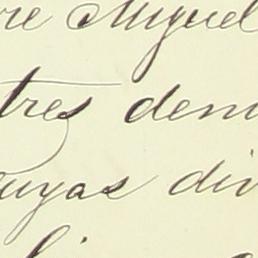 re Miguel
tres dem
cuyas div